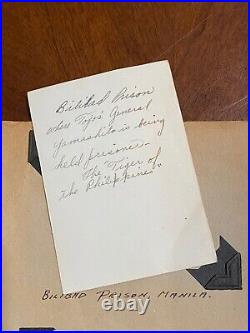 Bilibad Prison
where Tojo's General
Yamashita is being
held prisoner.
The Tiger of
the Philippines.
BILIBAD PRISON, MANILA.